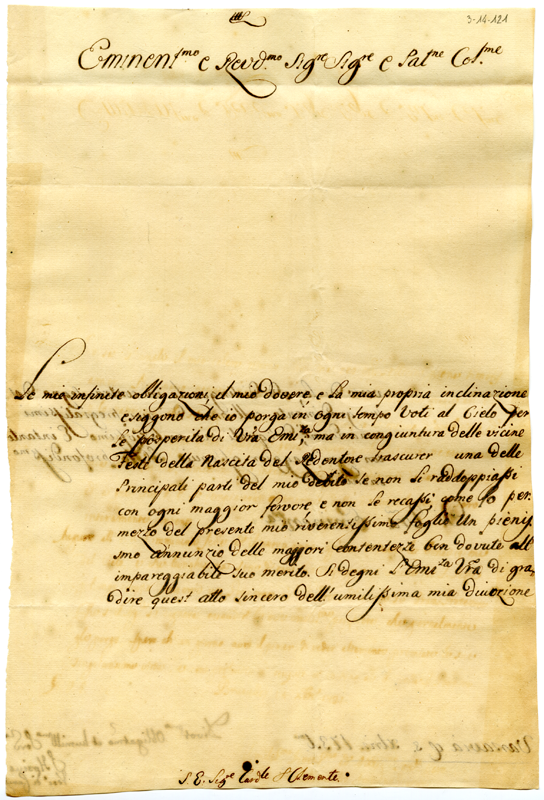 3-14-121
Eminent.mo e Revd.mo Sig.re Sig.re e Pat.ne Col.me
Le mie infinite obligazioni, il mio dovere e la mia propria inclinazione
esiggono che io porga in ogni tempo Voti al Cielo per
le posperita di Vra Emi.za, ma in congiuntura delle vicine
Feste della Nascita del Redentore trascurer una delle
Principali parti del mio debito se non li raddoppiassi
con ogni maggior fervore e non le recassi come fo per
mezzo del presente mio riverentissimo foglio un pienis
simo annunzio delle maggiori contentezze ben dovute all'
impareggiabile suo merito. Si degni L'Emi.za Vra di gra-
dire quest' atto sincero dell' umilissima mia divozione
S. E. Sig.re Card.le S Clemente.